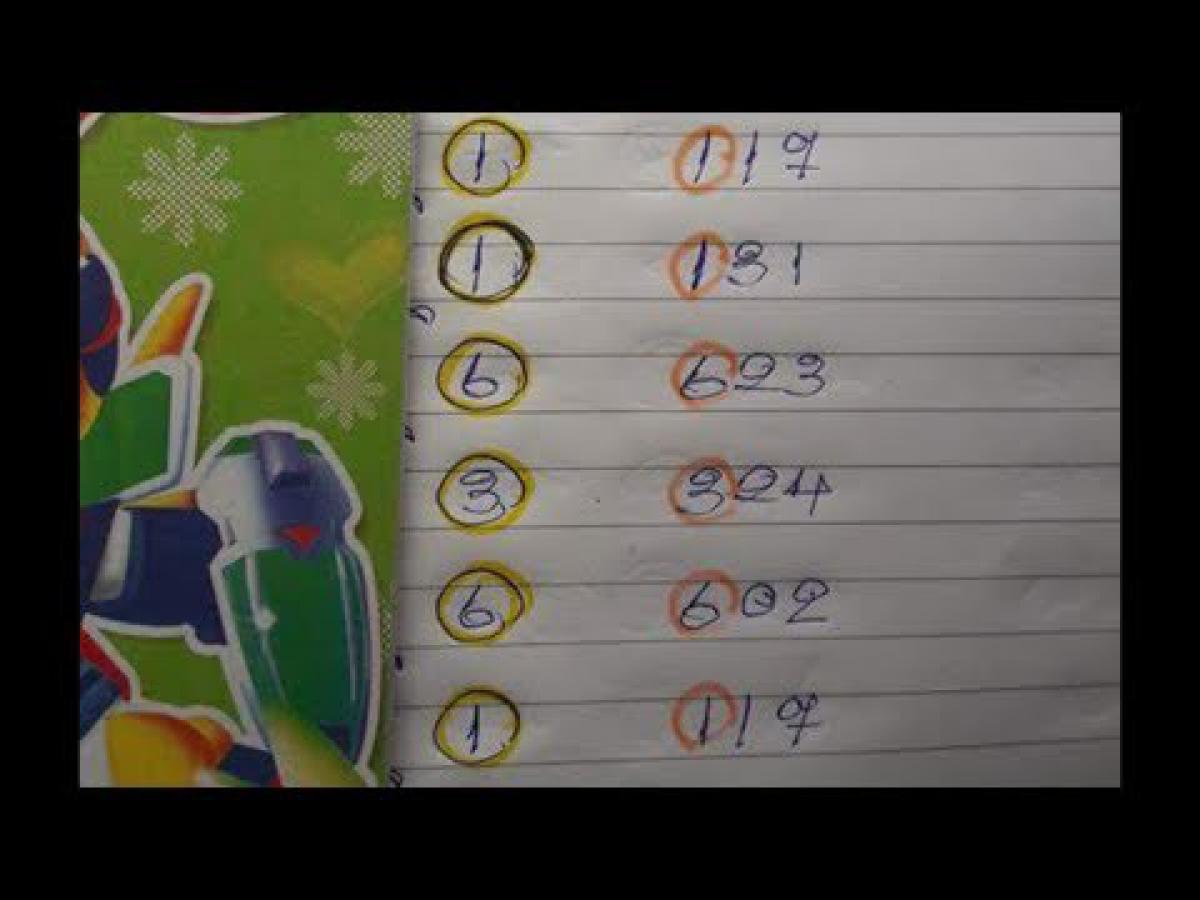 1 117
1 131
6 623
3 324
6 602
1 117